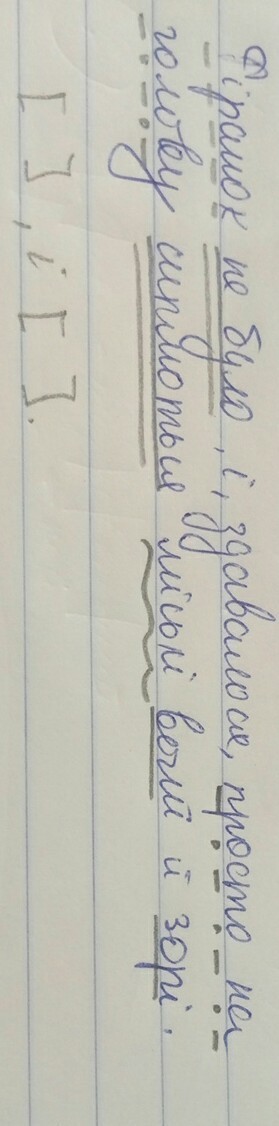 Фіранок не було, і, здавалося, просто на
голову сиплються міські вогні й зорі.
[ ], і [ ].